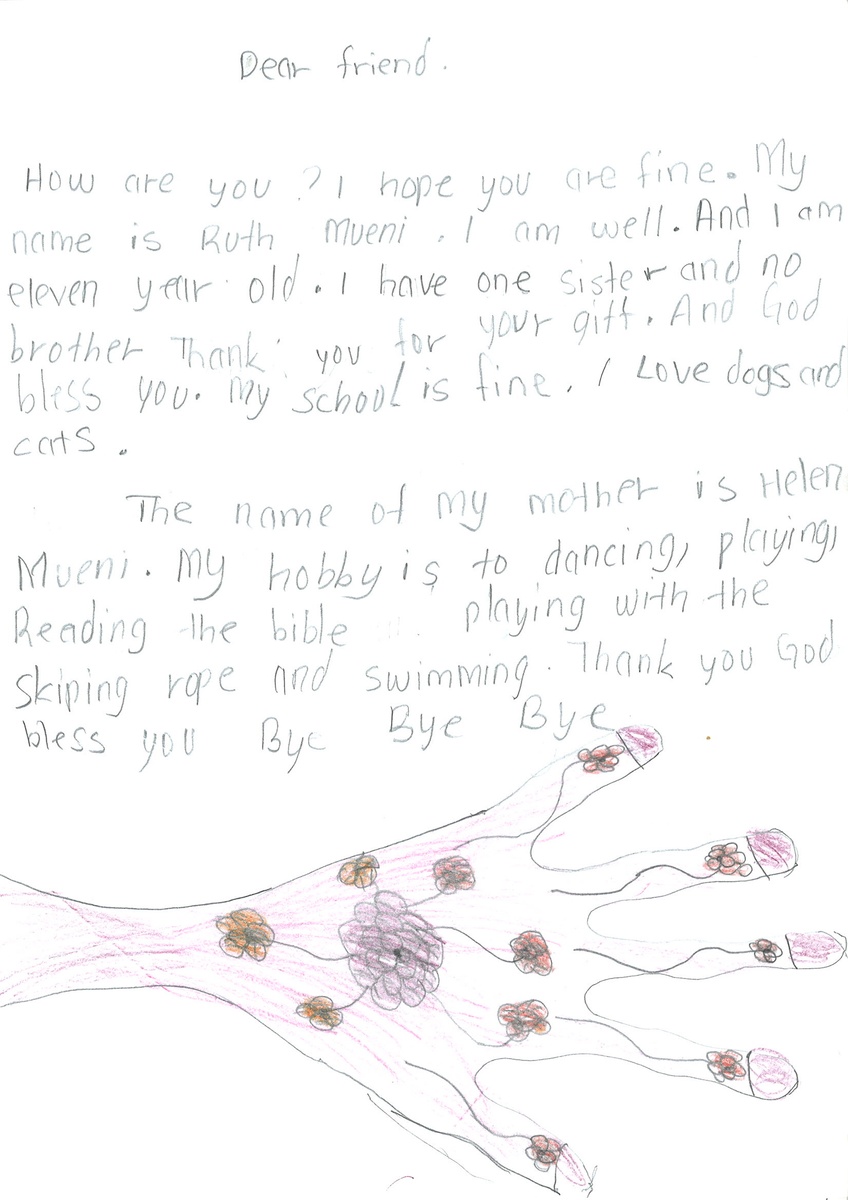 Dear friend.
How are you ? I hope you are fine. My
name is Ruth Mueni . I am well. And I am
eleven year old. I have one sister and no
brother Thank you for your gift. And God
bless you. My school is fine. I Love dogs and
cats .
The name of my mother is Helen
Mueni. My hobby is to dancing, playing,
Reading the bible playing with the
Skiping rope and swimming. Thank you God
bless you Bye Bye Bye